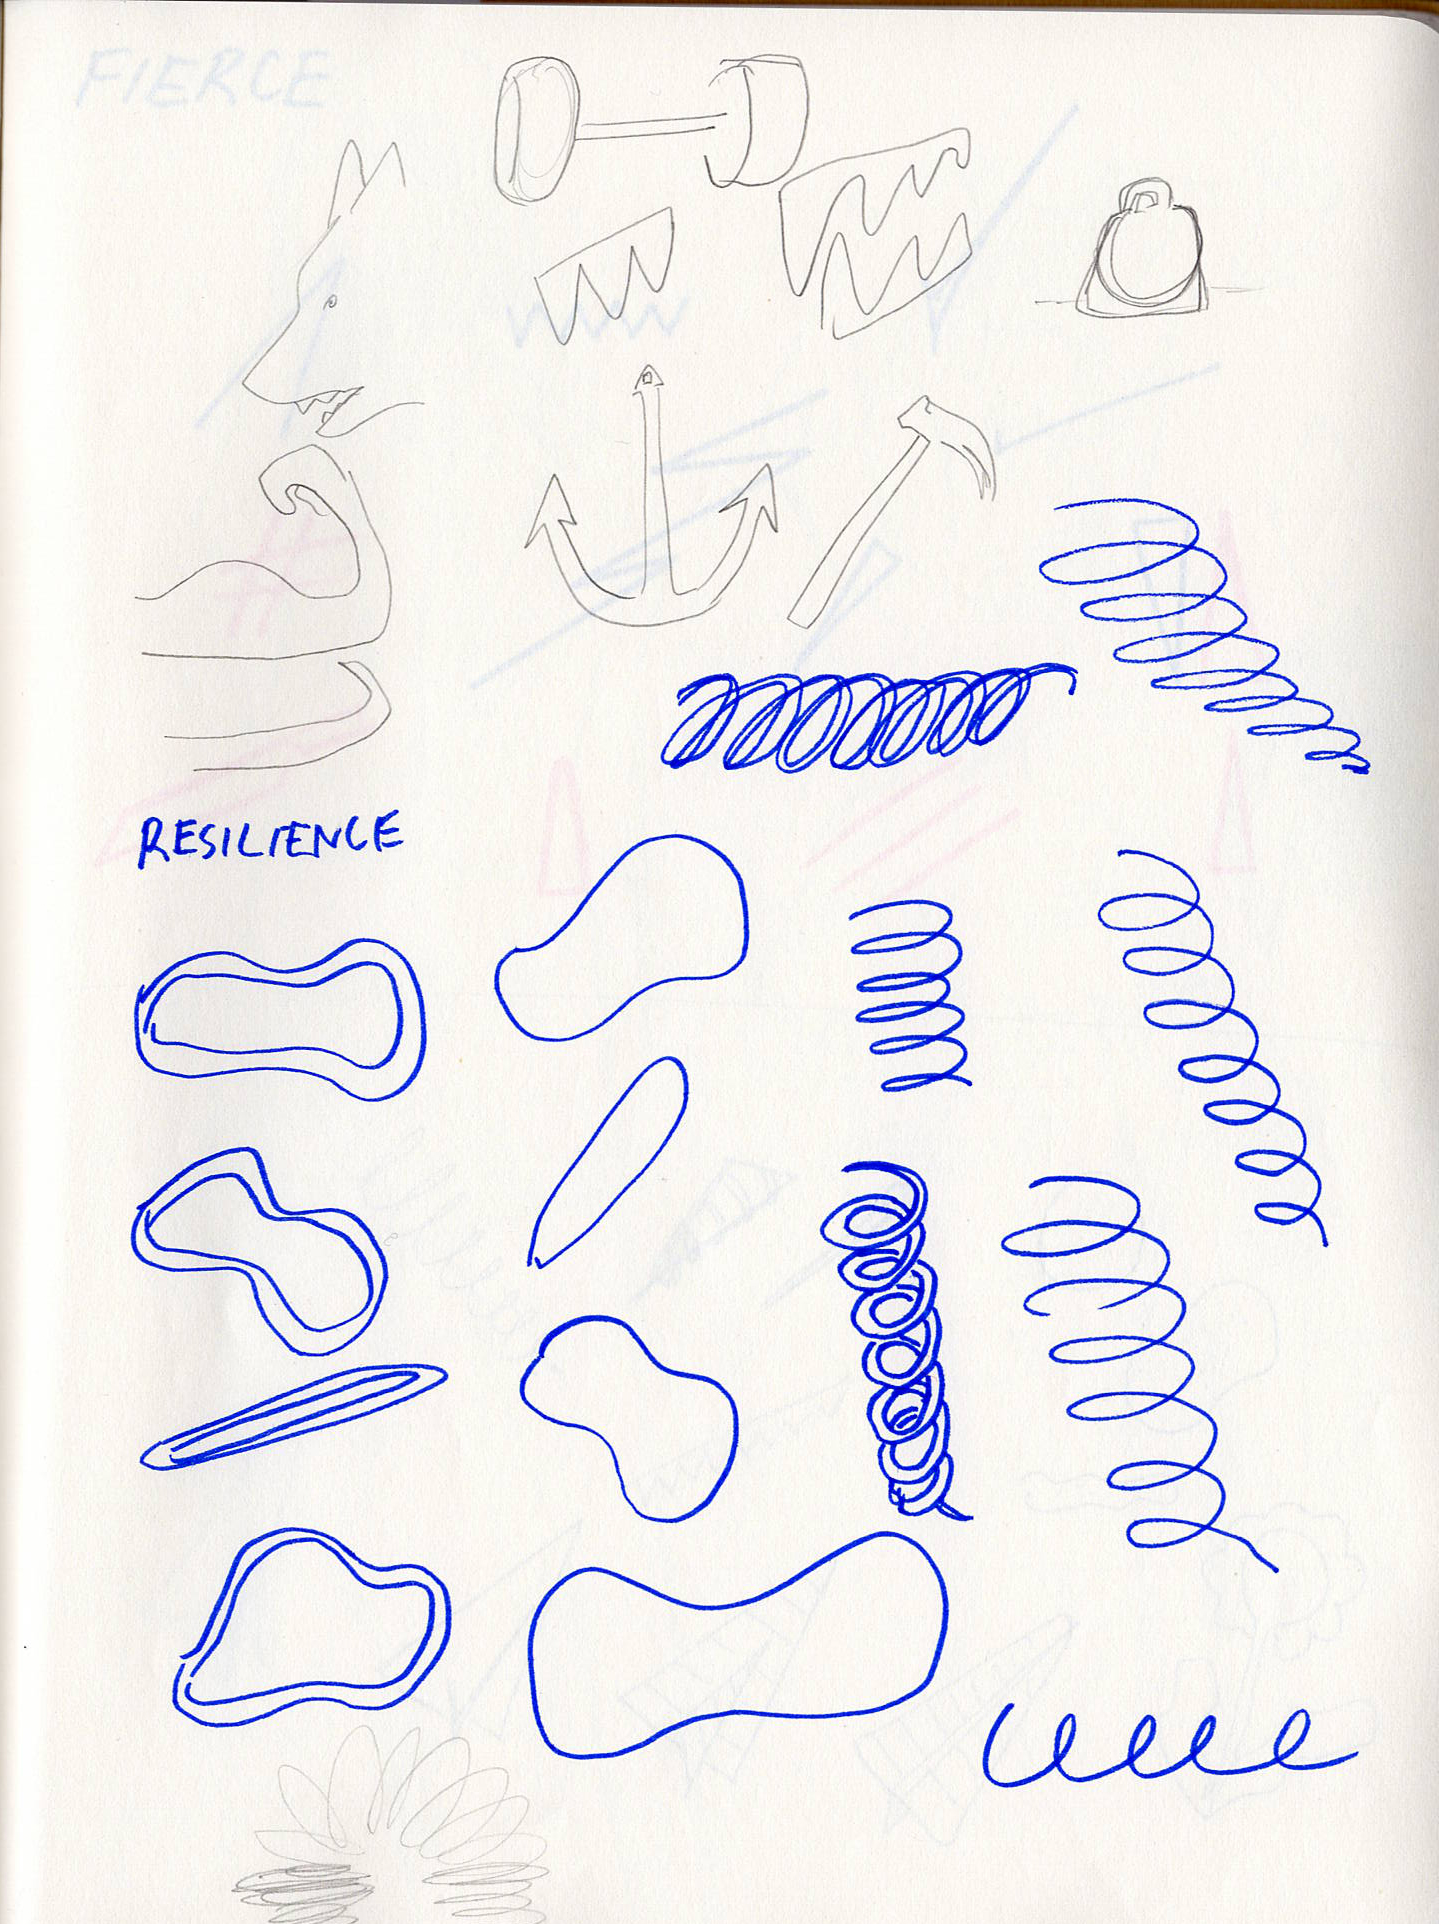 FIERCE
RESILIENCE